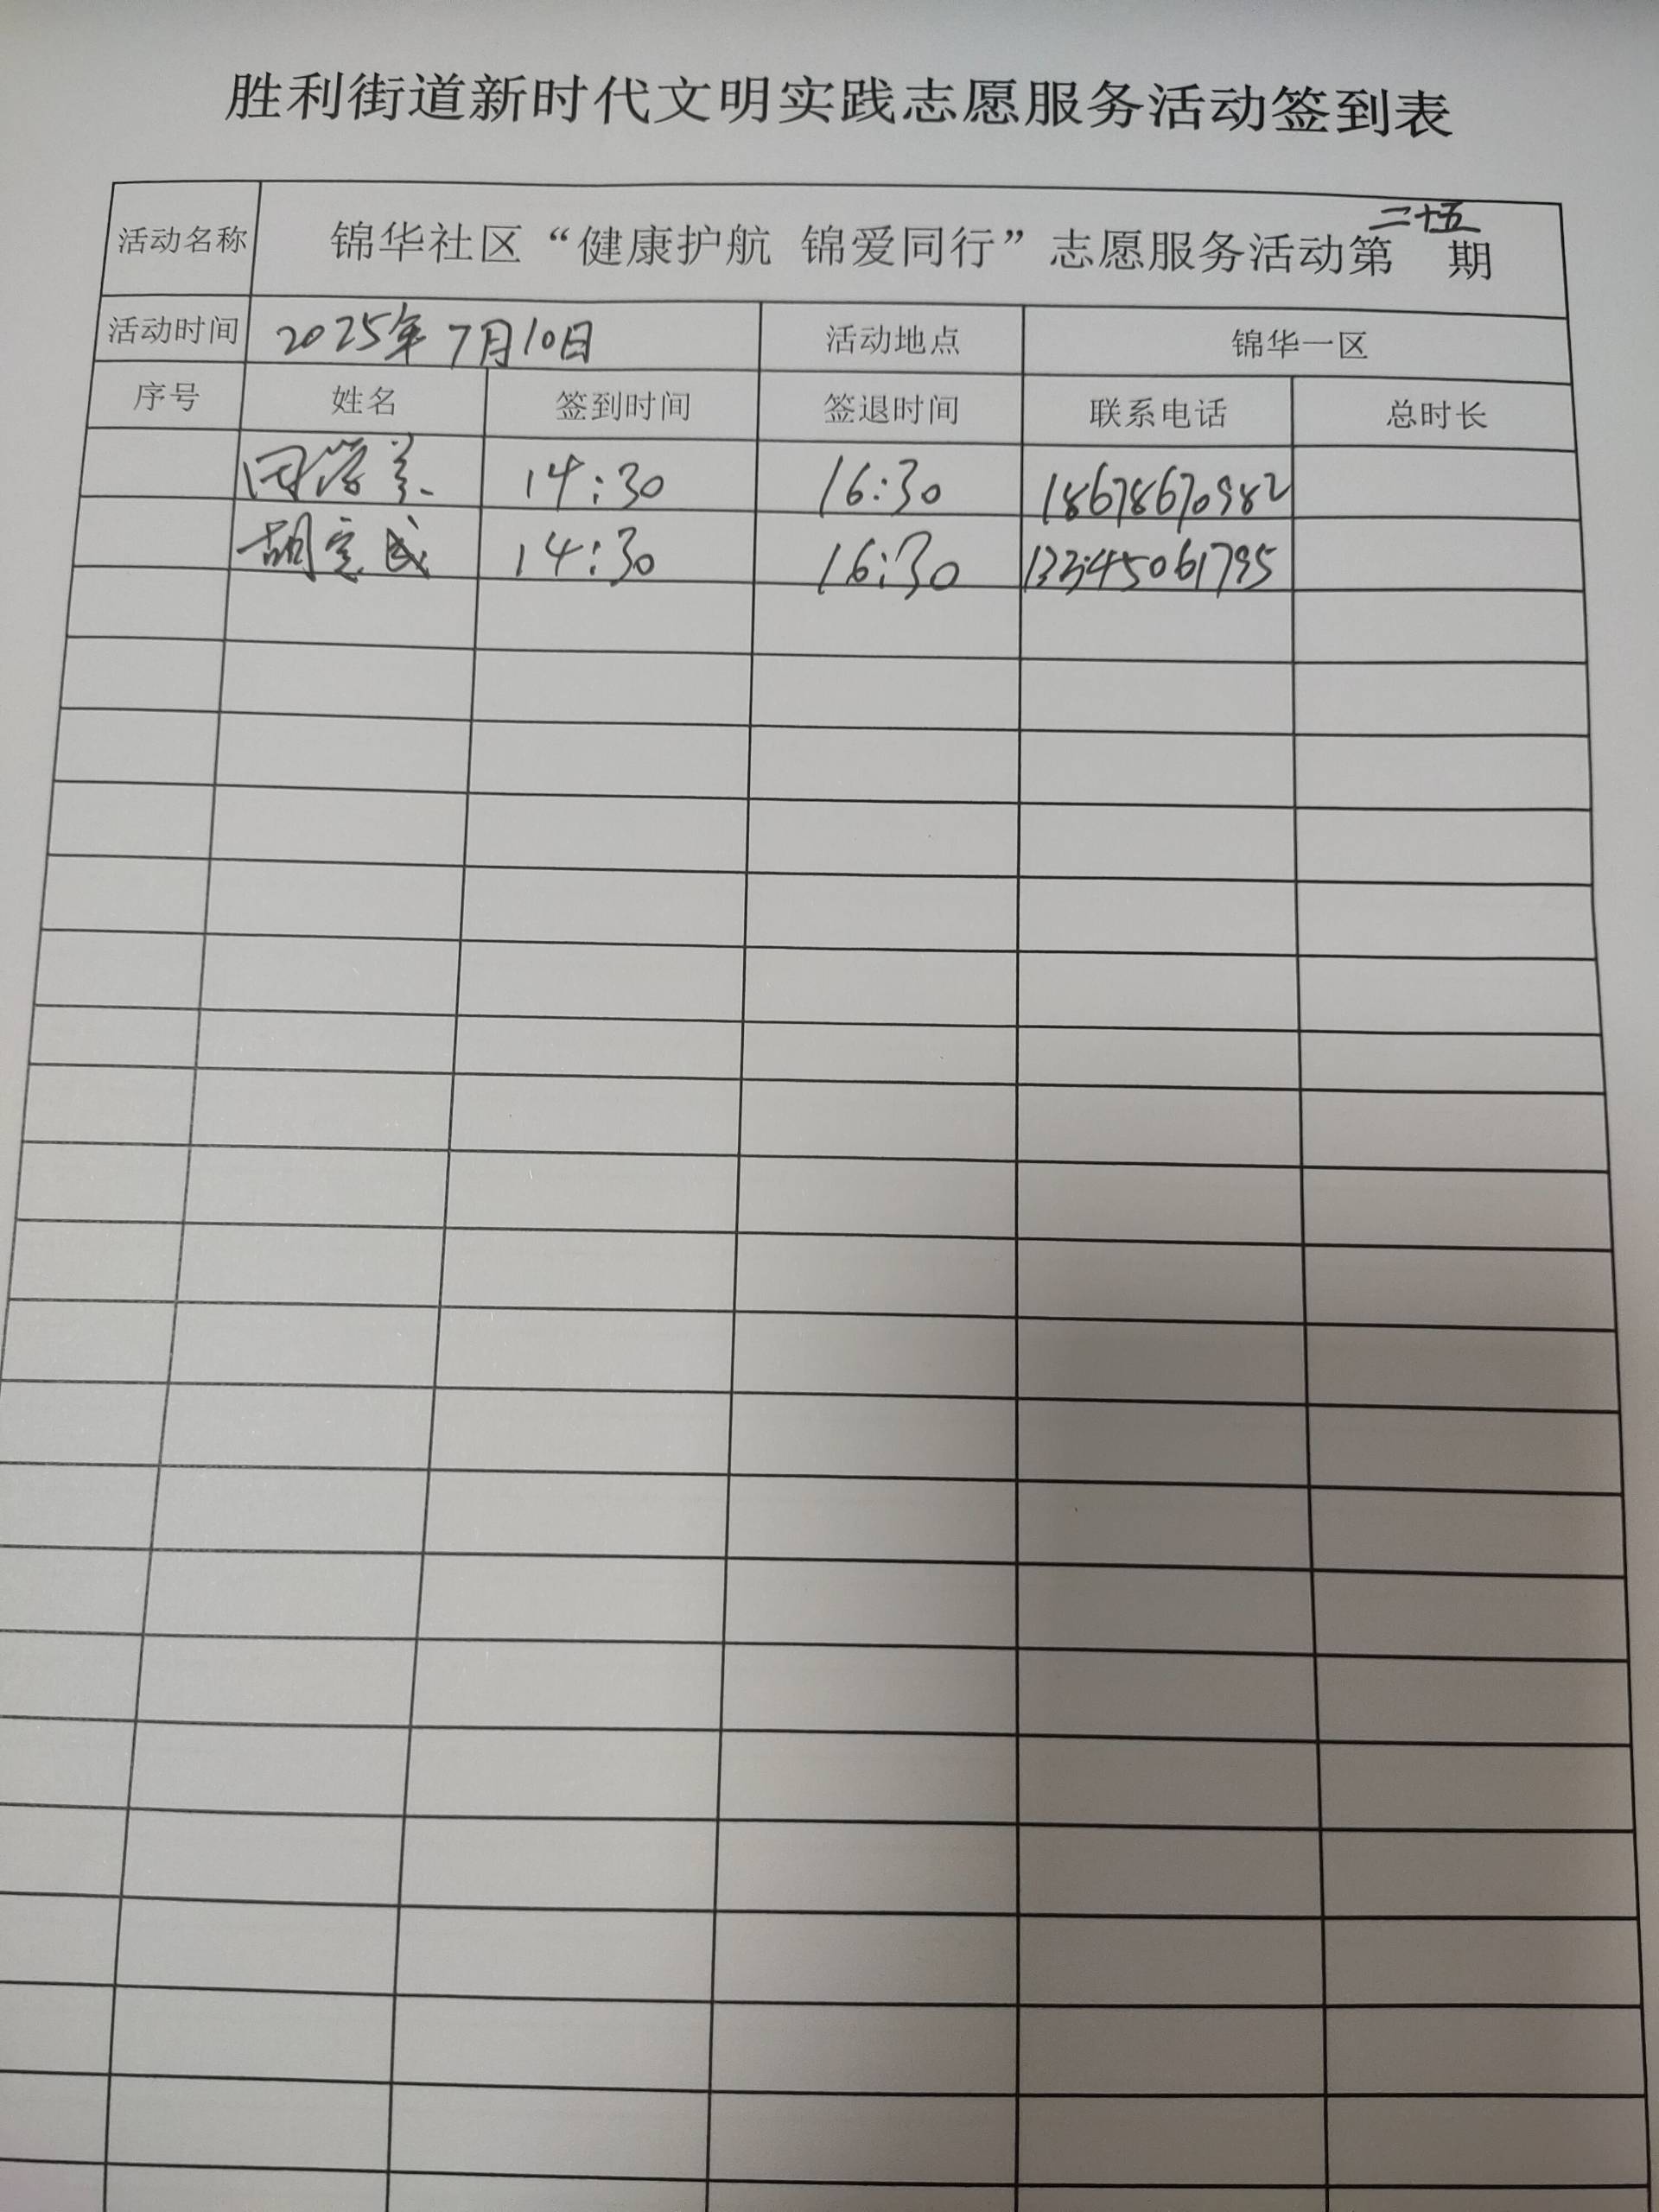 胜利街道新时代文明实践志愿服务活动签到表
活动名称 锦华社区“健康护航 锦爱同行”志愿服务活动第二十五期
活动时间 2025年7月10日 活动地点 锦华一区
序号 姓名 签到时间 签退时间 联系电话 总时长
14:30 16:30 18678670982
14:30 16:30